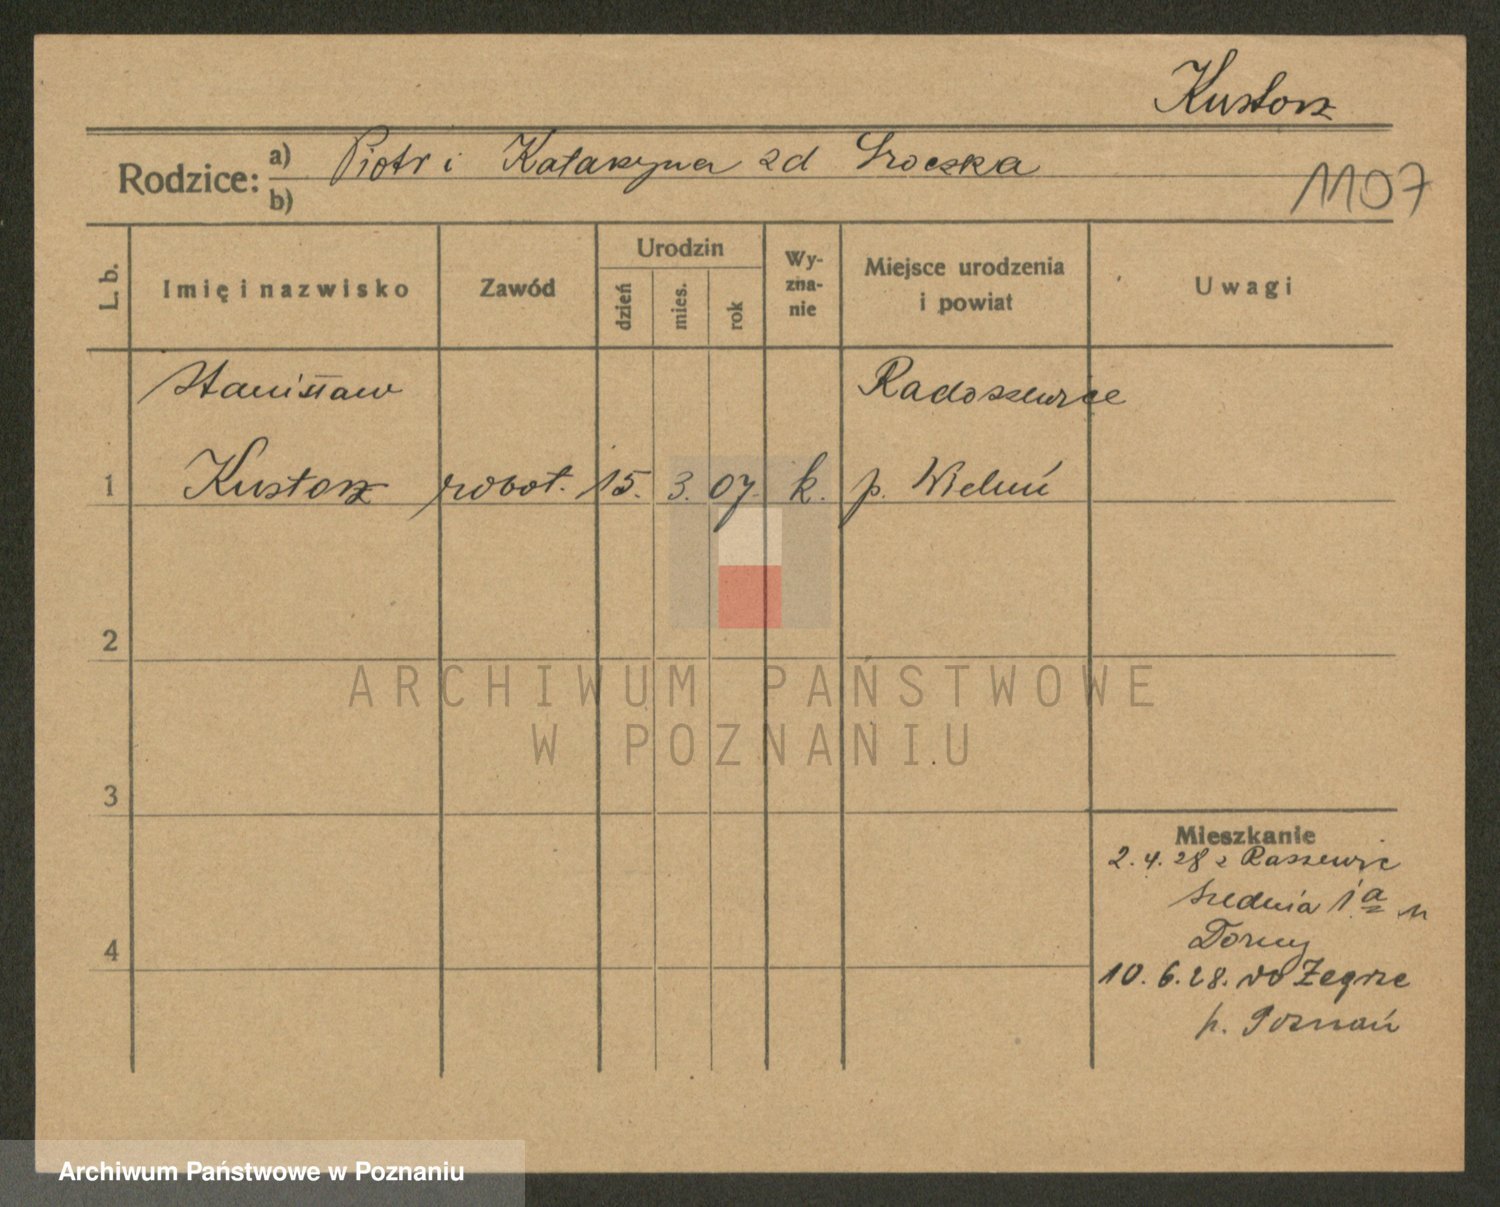 Kustosz
Rodzice: a) Piotr i Katarzyna zd Sroczka
b)
1107
L. b. Imię i nazwisko Zawód Urodzin dzień mies. rok Wy-zna-nie Miejsce urodzenia i powiat Uwagi
Stanisław Radoszewice
1 Kustosz robot. 15. 3. 07. k. p. Wieluń
2
ARCHIWUM PAŃSTWOWE
W POZNANIU
3
Mieszkanie
2. 4. 28 z Raszewic
Srednia 1a u
4
10. 6. 28. do Żegrze
p. Poznań
Archiwum Państwowe w Poznaniu